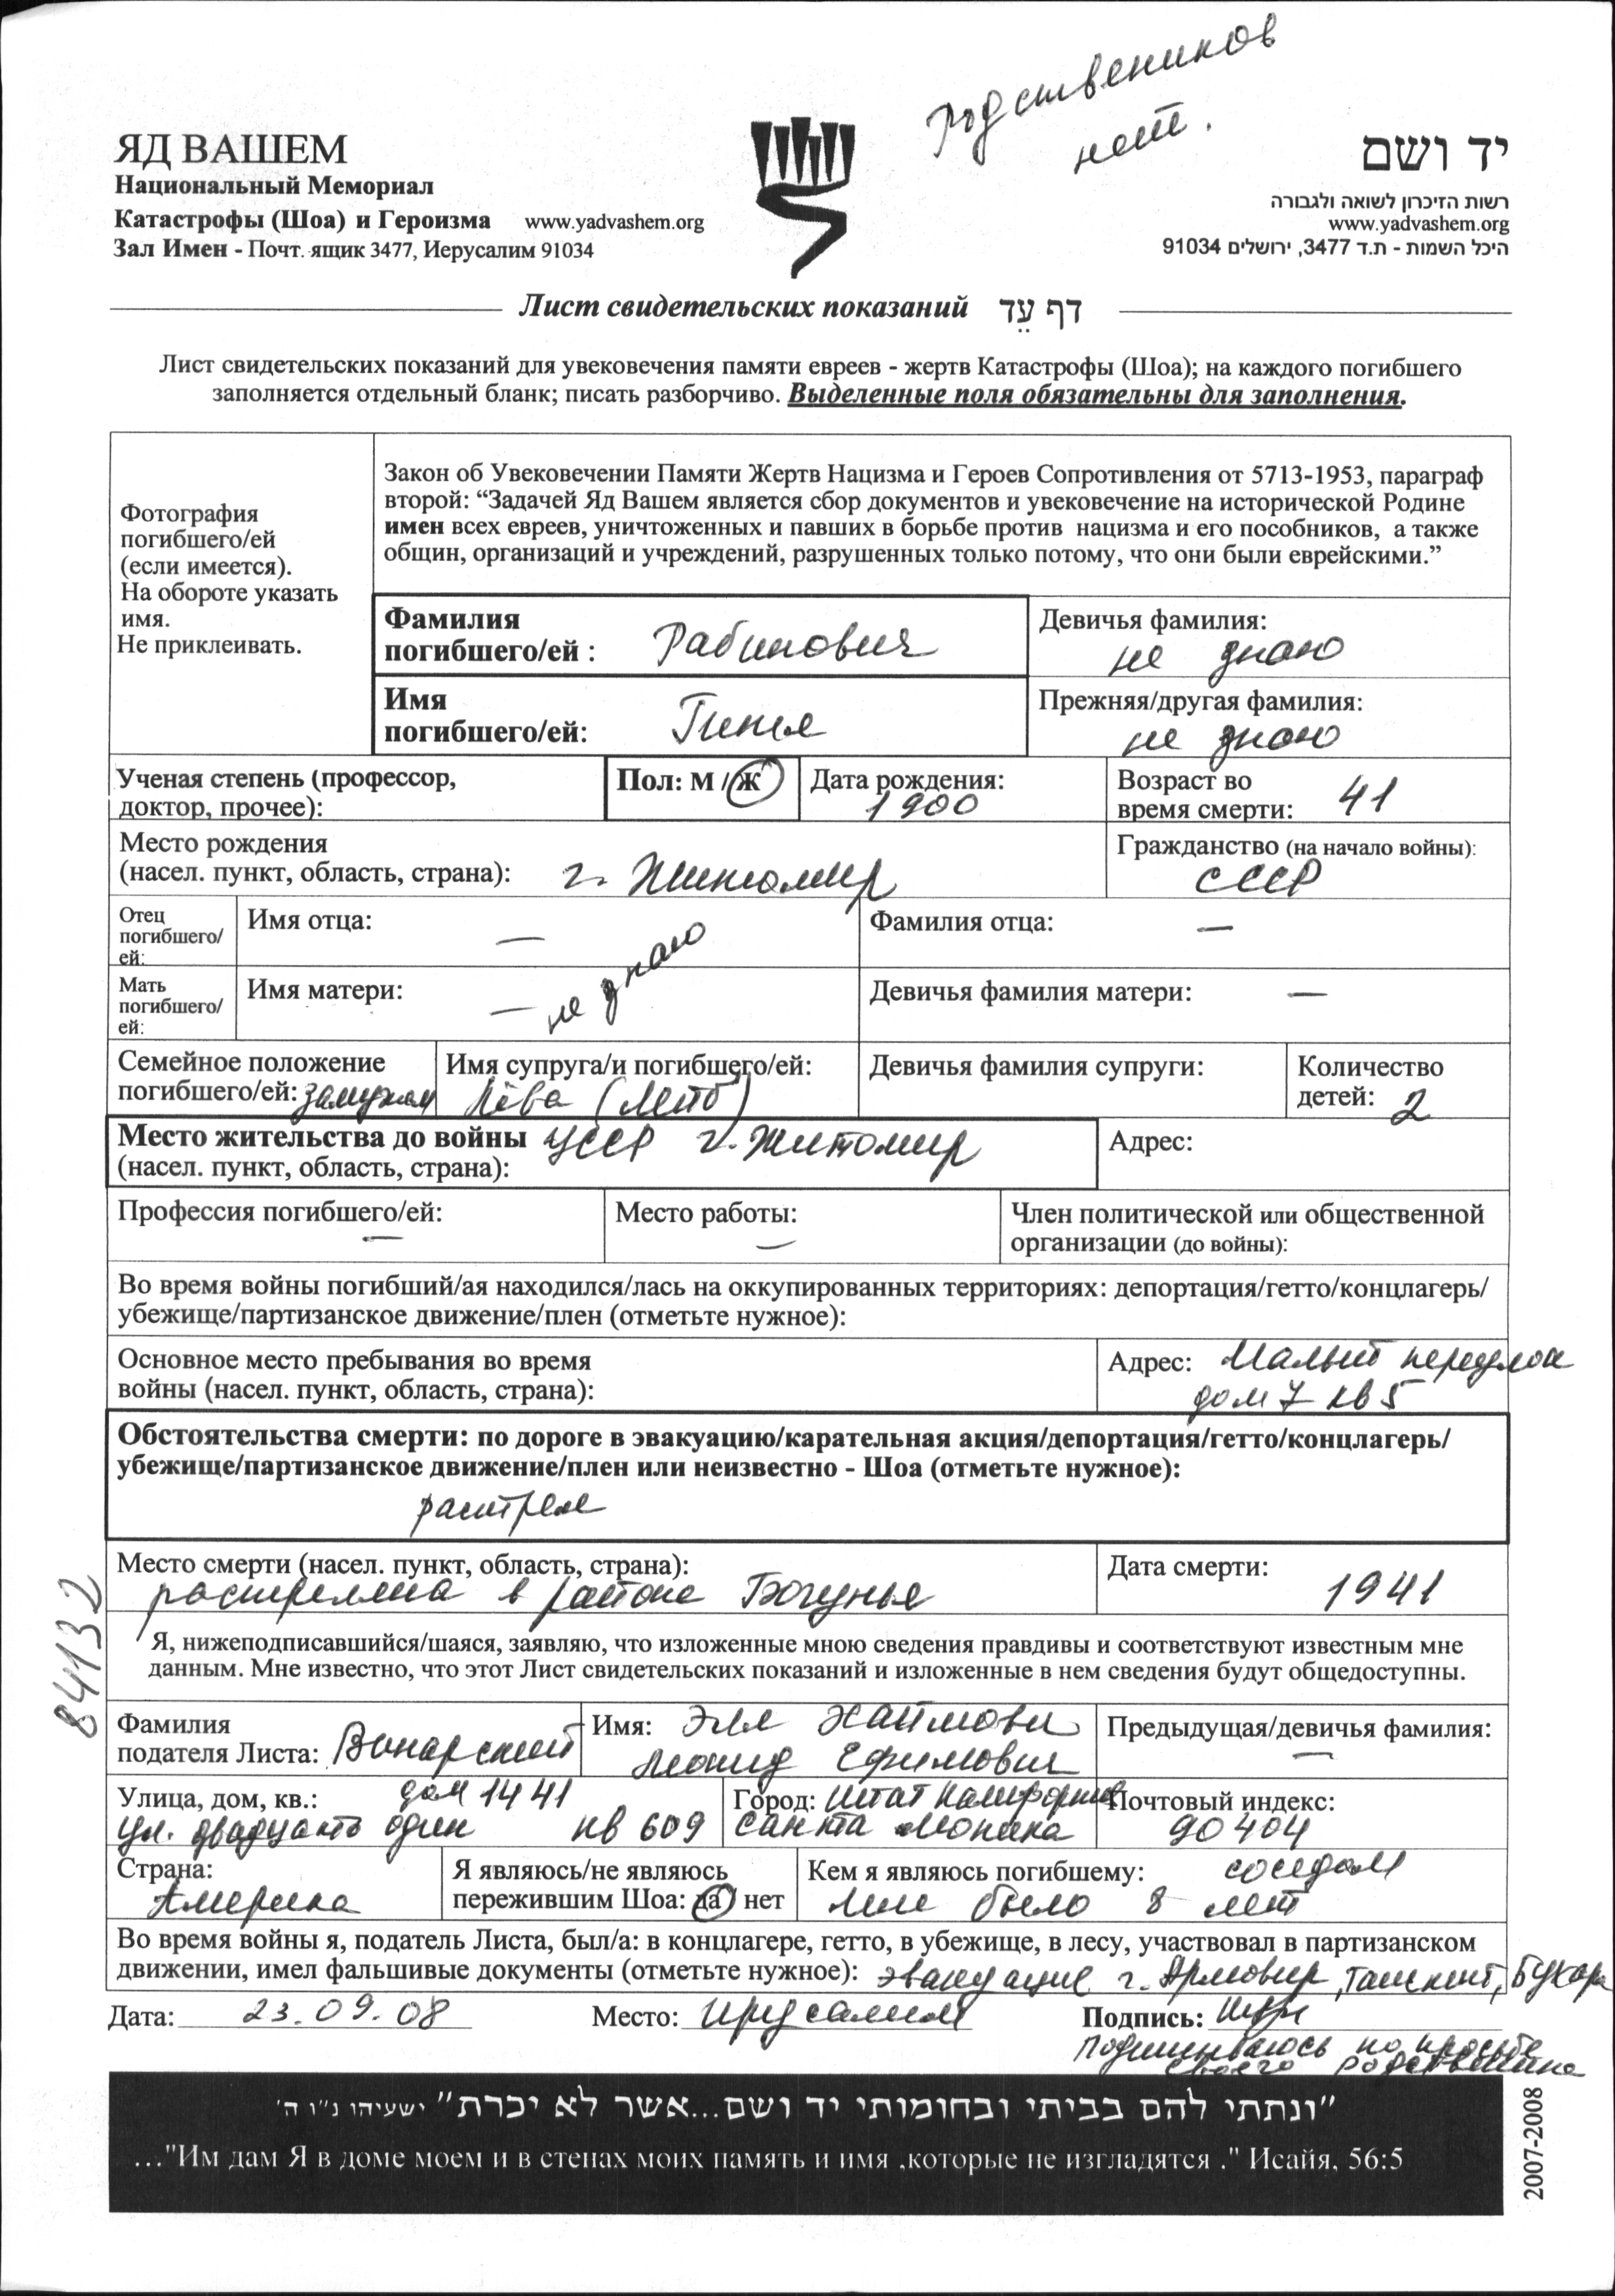 Родствеников
нет.
ЯД ВАШЕМ
Национальный Мемориал
Катастрофы (Шоа) и Героизма www.yadvashem.org
Зал Имен - Почт. ящик 3477, Иерусалим 91034
יד ושם
רשות הזיכרון לשואה ולגבורה
www.yadvashem.org
היכל השמות - ת.ד 3477, ירושלים 91034
Лист свидетельских показаний דף עֵד
Лист свидетельских показаний для увековечения памяти евреев - жертв Катастрофы (Шоа); на каждого погибшего
заполняется отдельный бланк; писать разборчиво. Выделенные поля обязательны для заполнения.
Фотография
погибшего/ей
(если имеется).
На обороте указать
имя.
Не приклеивать.
Закон об Увековечении Памяти Жертв Нацизма и Героев Сопротивления от 5713-1953, параграф
второй: “Задачей Яд Вашем является сбор документов и увековечение на исторической Родине
имен всех евреев, уничтоженных и павших в борьбе против нацизма и его пособников, а также
общин, организаций и учреждений, разрушенных только потому, что они были еврейскими.”
Фамилия
погибшего/ей : Рабинович
Девичья фамилия:
не знаю
Имя
погибшего/ей:
Прежняя/другая фамилия:
не знаю
Ученая степень (профессор,
доктор, прочее):
Пол: М / Ж
Дата рождения:
1900
Возраст во
время смерти: 41
Место рождения
(насел. пункт, область, страна): г. Житомир
Гражданство (на начало войны):
СССР
Отец
погибшего/
ей:
Имя отца: —
Фамилия отца: —
Мать
погибшего/
ей:
Имя матери: — не знаю
Девичья фамилия матери: —
Семейное положение
погибшего/ей: замужем
Имя супруга/и погибшего/ей:
Лёва (Лейб)
Девичья фамилия супруги:
Количество
детей: 2
Место жительства до войны УССР г. Житомир
(насел. пункт, область, страна):
Адрес:
Профессия погибшего/ей:
—
Место работы:
—
Член политической или общественной
организации (до войны):
Во время войны погибший/ая находился/лась на оккупированных территориях: депортация/гетто/концлагерь/
убежище/партизанское движение/плен (отметьте нужное):
Основное место пребывания во время
войны (насел. пункт, область, страна):
Адрес: Малый переулок
дом 7 кв 5
Обстоятельства смерти: по дороге в эвакуацию/карательная акция/депортация/гетто/концлагерь/
убежище/партизанское движение/плен или неизвестно - Шоа (отметьте нужное):
растрел
Место смерти (насел. пункт, область, страна):
растреляна в районе Богунья
Дата смерти:
1941
84132
Я, нижеподписавшийся/шаяся, заявляю, что изложенные мною сведения правдивы и соответствуют известным мне
данным. Мне известно, что этот Лист свидетельских показаний и изложенные в нем сведения будут общедоступны.
Фамилия
подателя Листа: Винарский
Имя: Эля Хаймович
Леонид Ефимович
Предыдущая/девичья фамилия:
—
Улица, дом, кв.: дом 1441
ул. двадцать один кв 609
Город: Штат Калифорния
Санта Моника
Почтовый индекс:
90404
Страна:
Америка
Я являюсь/не являюсь
пережившим Шоа: да / нет
Кем я являюсь погибшему: соседом
мне было 8 лет
Во время войны я, податель Листа, был/а: в концлагере, гетто, в убежище, в лесу, участвовал в партизанском
движении, имел фальшивые документы (отметьте нужное): эвакуацие г. Армовир, Ташкент, Бухара
Дата: 23.09.08
Место: Ирусалим
Подпись:
Подписываюсь по просьбе
своего родственика
"ונתתי להם בביתי ובחומותי יד ושם...אשר לא יכרת" ישעיהו נ"ו ה'
..."Им дам Я в доме моем и в стенах моих память и имя ,которые не изгладятся ." Исайя, 56:5
2007-2008